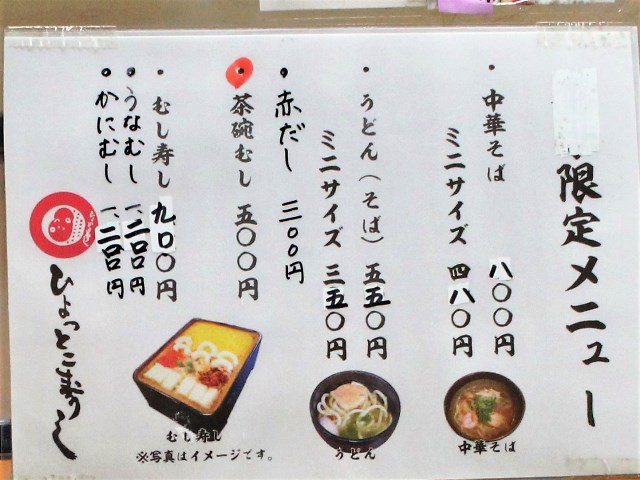 限定メニュー
・中華そば 八〇〇円
ミニサイズ 四八〇円
・うどん(そば) 五五〇円
ミニサイズ 三五〇円
・赤だし 三〇〇円
・茶碗むし 五〇〇円
・むし寿し 九〇〇円
・うなむし 一、二〇〇円
・かにむし 一、二〇〇円
ひょっとこ寿し
むし寿し
うどん
中華そば
※写真はイメージです。